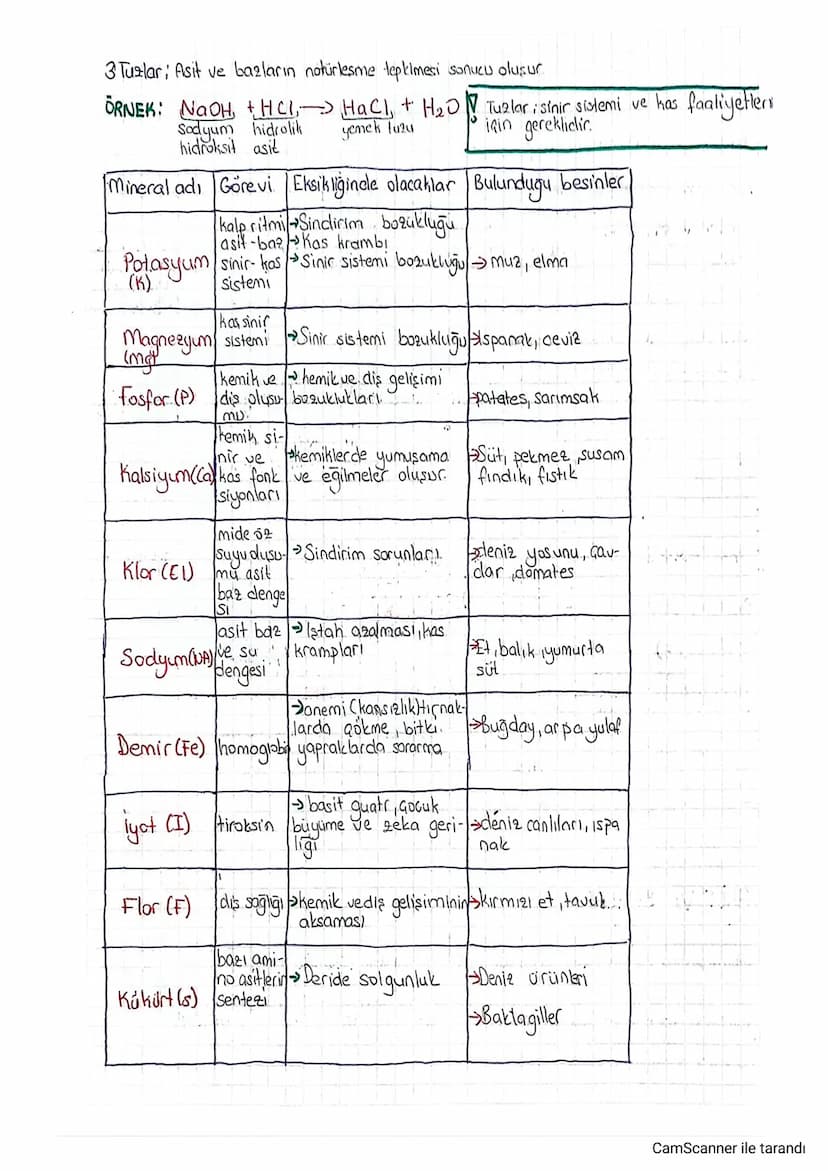 3 Tuzlar; Asit ve bazların nötürleşme tepkimesi sonucu oluşur
ÖRNEK: NaOH + HCl → HaCl + H₂O
sodyum hidrolik yemek tuzu
hidroksit asit
! Tuzlar; sinir sistemi ve kas faaliyetleri
için gereklidir.
Mineral adı Görevi Eksikliğinde olacaklar Bulunduğu besinler
Potasyum
(K)
kalp ritmi
asit-baz
sinir-kas
sistemi
→Sindirim bozukluğu
→Kas krambı
→Sinir sistemi bozukluğu
→muz, elma
Magnezyum
(mg)
kas sinir
sistemi
→Sinir sistemi bozukluğu
→Ispanak, ceviz
fosfor (P)
kemik ve
diş oluşu-
mu.
→kemik ve diş gelişimi
bozuklukları
→patates, sarımsak
Kalsiyum(Ca)
kemik si-
nir ve
kas fonk
siyonları
→kemiklerde yumuşama
ve eğilmeler oluşur.
→Süt, pekmez, susam
fındık, fıstık
Klor (El)
mide öz
suyu oluşu-
mu asit
baz denge
si
→Sindirim sorunları
→deniz yosunu, çav-
dar, domates
Sodyum(NA)
asit baz
ve su
dengesi
→İstah azalması, kas
krampları
→Et, balık, yumurta
süt
Demir (Fe)
homoglobi
→anemi (kansızlık)tırnak-
larda çökme, bitki
yapraklarda sararma
→Buğday, arpa yulaf
İyot (I)
tiroksin
→basit guatr, çocuk
büyüme ve zeka geri-
liği
→deniz canlıları, ıspa
nak
Flor (F)
diş sağlığı
→kemik ve diş gelişiminin
aksaması
→kırmızı et, tavuk...
Kükürt (s)
bazı ami-
no asitlerin
sentezi
→Deride solgunluk
→Deniz ürünleri
→Baklagiller
CamScanner ile tarandı